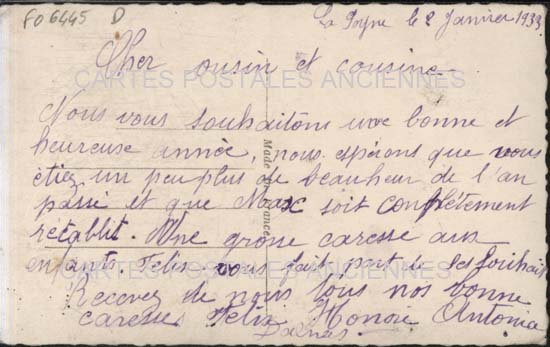 FO 6445 D
La Poyne le 2 Janvier 1933
Cher ousin et cousine
CARTES POSTALES ANCIENNES
Nous vous souhaitons une bonne et
heureuse année, nous espérons que vous
étiez un peu plus de beauheur de l'an
passé et que Max soit complètement
rétablit. Une grosse caresse aux
enfants. Felix vous fait part de ses souhait
CARTES POSTALES ANCIENNES
Recevez de nous tous nos bonne
caresse Felix Honore Antonia
Made in France